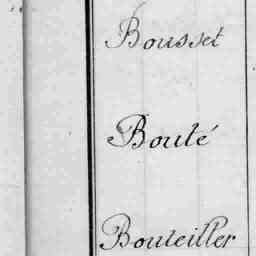 Bousset
Bouté
Bouteiller